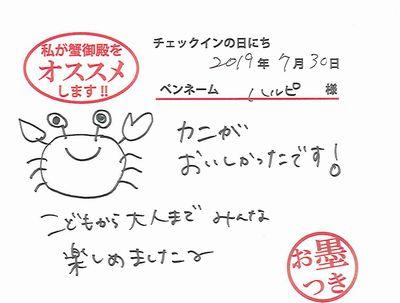 私が蟹御殿を
オススメ
します!!
チェックインの日にち
2019年7月30日
ペンネーム ハルピ 様
カニが
おいしかったです!
こどもから大人まで みんな
楽しめました〜
お墨
つき